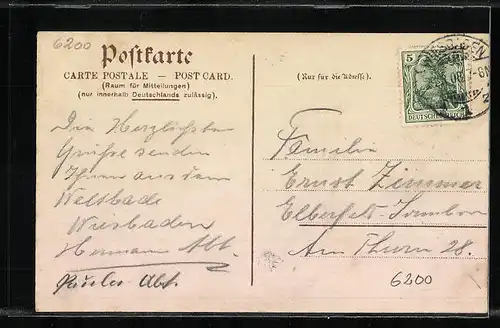 6200
Postkarte
CARTE POSTALE — POST CARD.
(Raum für Mitteilungen)
(nur innerhalb Deutschlands zulässig).
(Nur für die Adresse.)
5
DEUTSCHES REICH
Die Herzlichsten
Grüße senden
Ihnen aus dem
Weltbade
Wiesbaden
Hermann Abt.
Abt.
Familie
Ernst Zimmer
Elberfeld-
Am Thurm 28.
6200